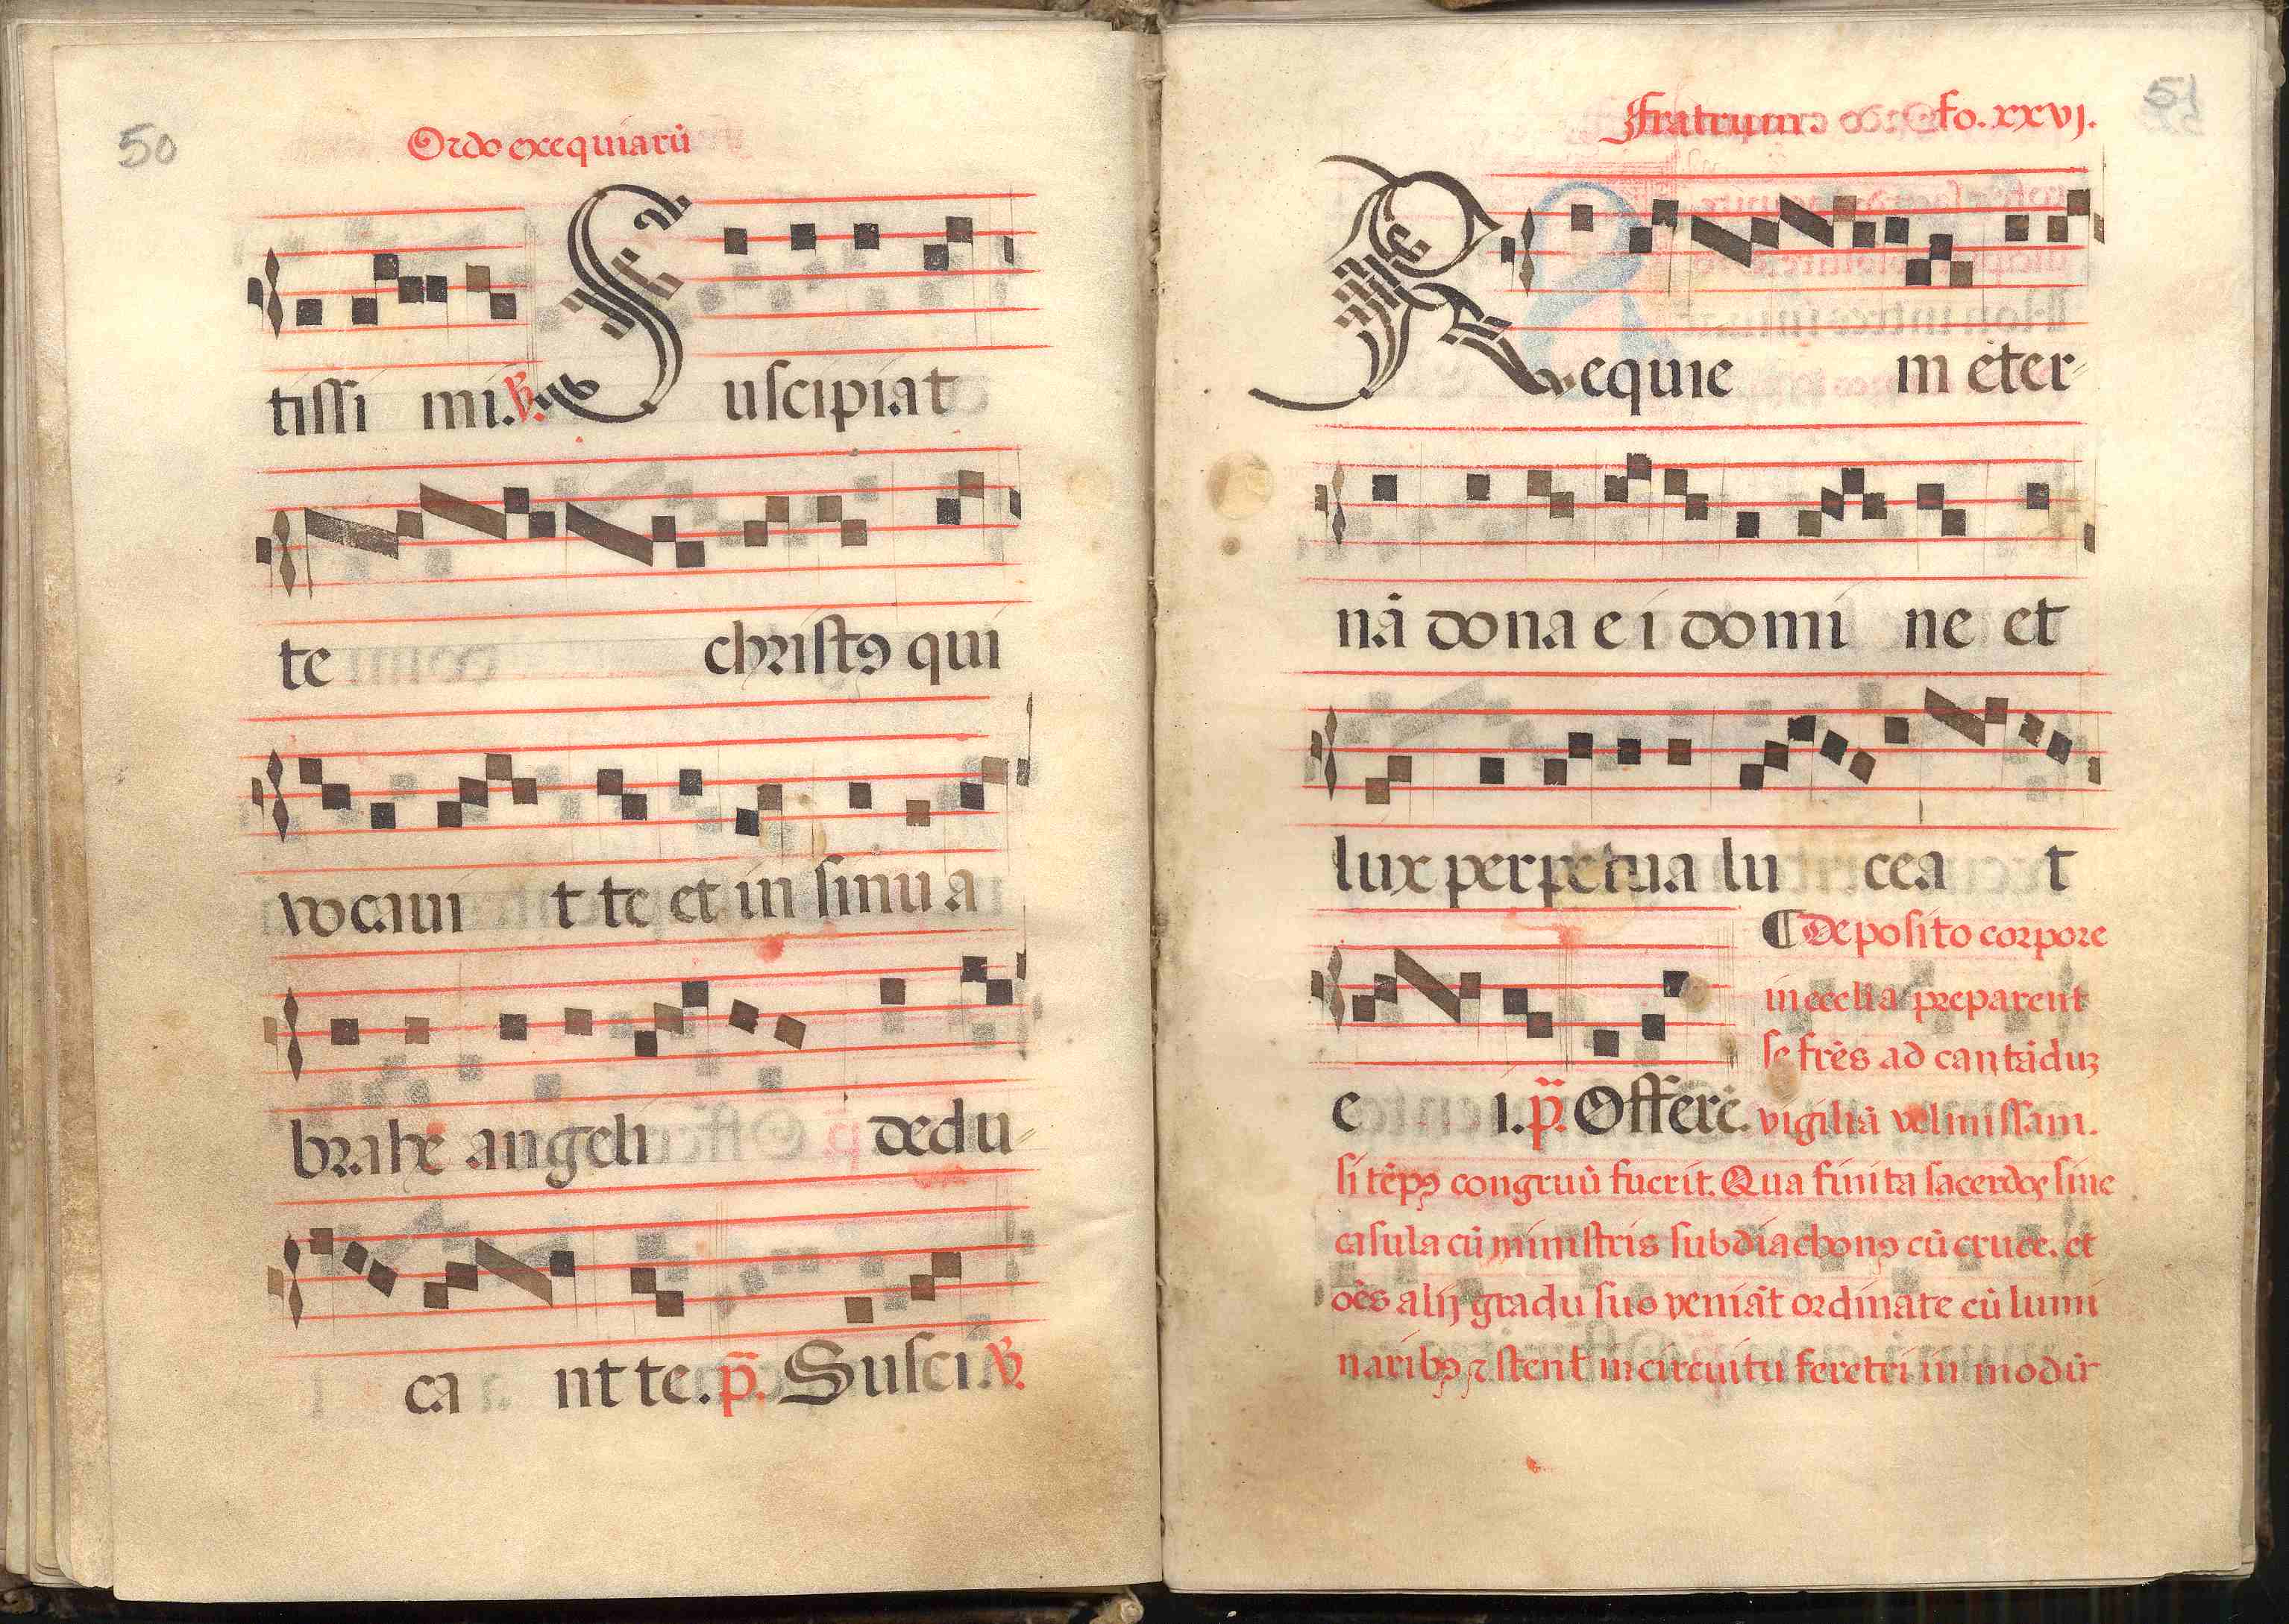 50
Ordo exequiarū
tissi mi. ℣. Suscipiat
te christꝰ qui
vocaui t te et in sinu a
brahe angeli dedu-
ca nt te. p̄. Susci. ℣.
51
Fratrum. fo. xxvj.
Requie m eter-
nā dona e i domi ne et
lux perpetua lu cea t
e i. p̄. Offerē.
¶ Deposito corpore
in ecclia preparent
se frēs ad cantāduꝫ
vigiliā vel missam.
si tēpꝰ congruū fuerit. Qua finita sacerdos sine
casula cū ministris subdiachonꝰ cū cruce. et
oēs alij gradu suo veniāt ordinate cū lumi
naribꝰ ⁊ stent in circuitu feretri in modū